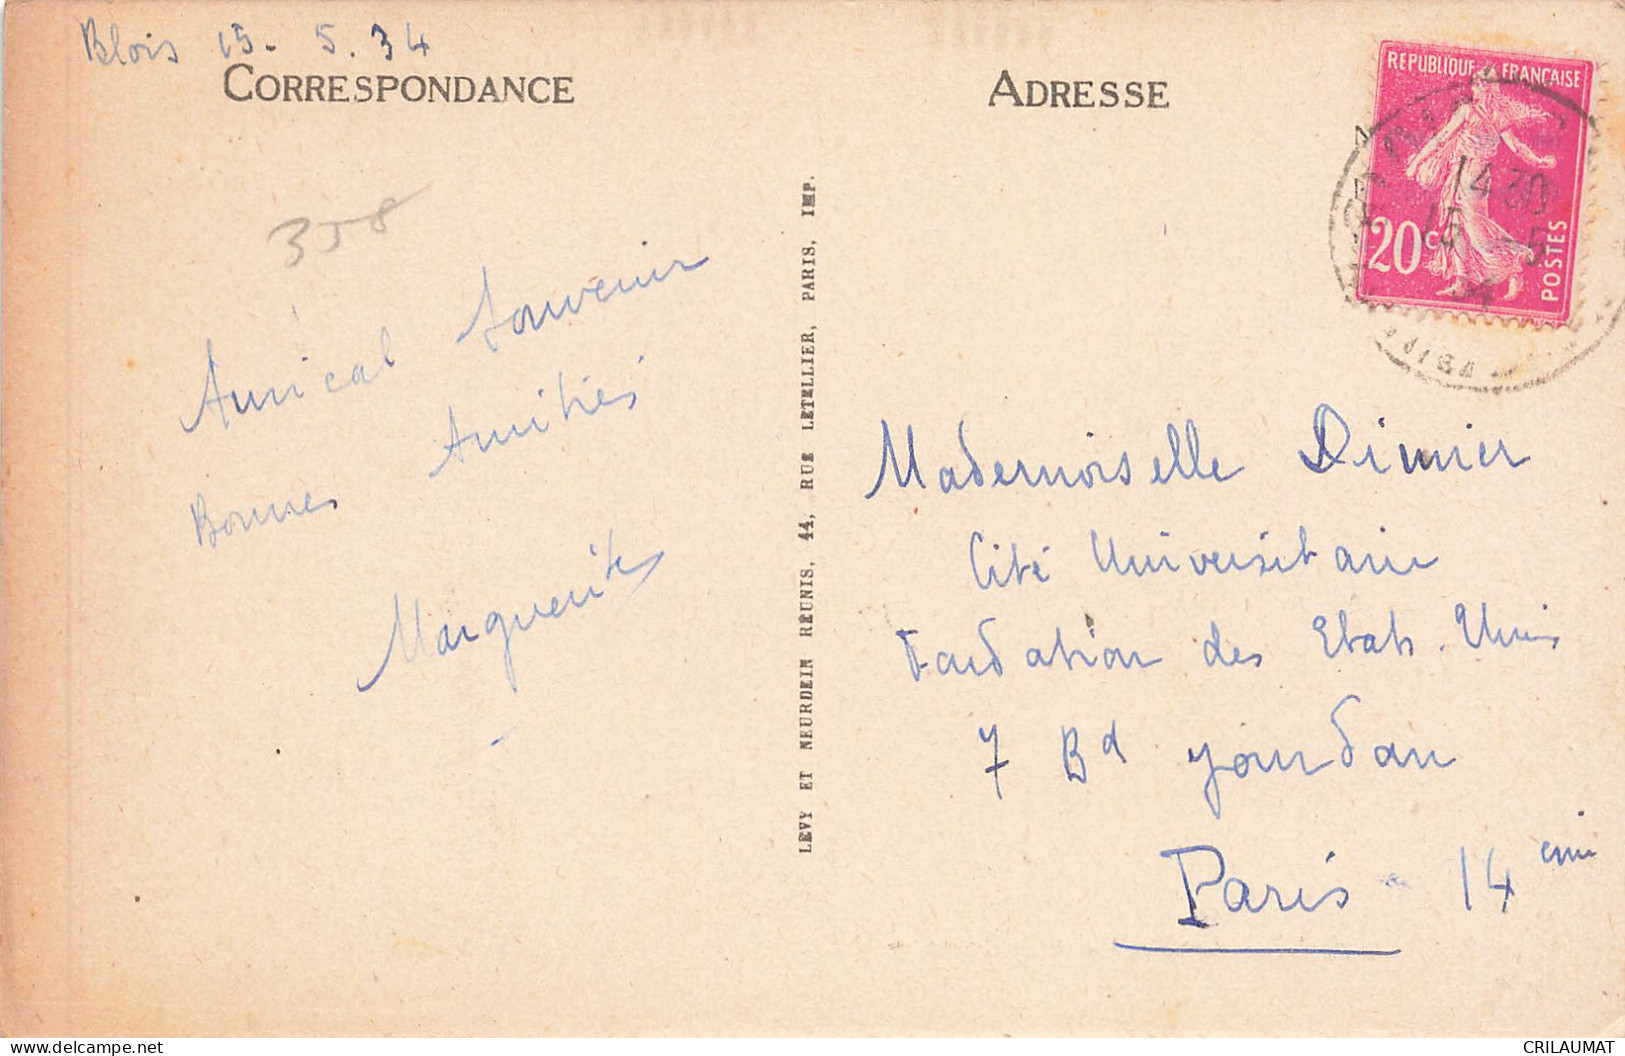 Blois 15. 5. 34
CORRESPONDANCE
358
Amical souvenir
Bonnes Amitiés
Marguerite
LEVY ET NEURDEIN RÉUNIS, 44, RUE LETELLIER, PARIS, IMP.
ADRESSE
REPUBLIQUE FRANÇAISE
20c
POSTES
14 30
15 -5
34
Mademoiselle Dimier
Cité Universitaire
Fondation des Etats-Unis
7 Bd Jourdan
Paris - 14 eme
www.delcampe.net
CRILAUMAT